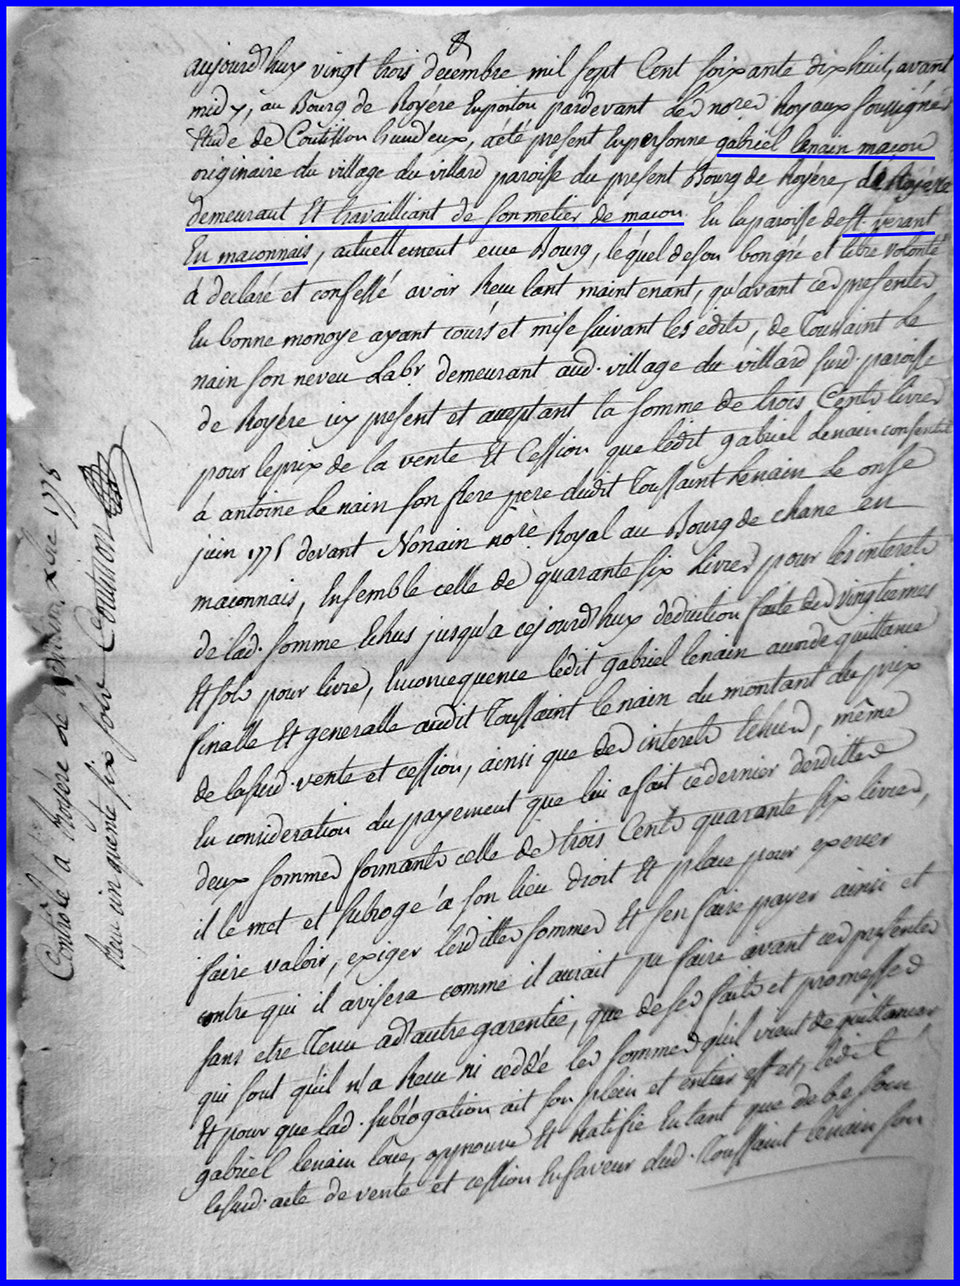 aujourd'huy vingt trois decembre mil sept Cent soixante dix huit, avant
midy, au Bourg de Royére Enpoitou pardevant les no.res Royaux soussignés
Etude de Coutisson l'un d'eux, a été present En personne gabriel lenain macon
originaire du village du villard paroisse du present Bourg de Royére,
demeurant Et travailliant de son metier de macon En la paroisse de St. verant
En maconnais, actuellement Bourg, lequel de son bon gré et libre volonté
à declaré et confessé avoir Recu tant maintenant, qu'avant ces presentes
En bonne monoye ayant cours et mise suivant les edits, de Toussaint Le
nain son neveu Labr demeurant aud. village du villard susd. paroisse
de Royére icy present et acceptant la somme de trois Cents livres
pour le prix de la vente Et Cession que ledit gabriel Lenain consentit
à antoine Le nain son frere pere dudit Toussaint Lenain Le onse
juin devant Nonain no.re Royal au Bourg de chane en
maconnais, Ensemble celle de quarante six Livres pour les interets
de lad. somme Echus jusqu'a cejourd'huy deduction faite des vingtiemes
Et sols pour livre, En consequence ledit gabriel lenain quittance
finalle Et generalle audit Toussaint le nain du montant du prix
de la susd. vente et cession, ainsi que des interets Echus, même
En consideration du payement que lui a fait ce dernier desdittes
deux sommes formants celle de trois Cents quarante six livres,
il le met et subroge à son lieu droit Et place pour
faire valoir, exiger lesdittes sommes Et s'en faire payer ainsi et
contre qui il avisera comme il aurait pu faire avant ces presentes
sans etre Tenu ad'autre garentie, que de ses faits et promesses
qui sont qu'il n'a Recu ni ceddé les sommes qu'il vient de quittancer
Et pour que lad. subrogation ait son plein et entier effet, ledit
gabriel lenain loue, approuve Et Ratifie En tant que de besoin
lesusd. acte de vente et cession En faveur dud. Toussaint Lenain son
Controlé a Royére ce 1778
Recu cinquante six sols Coutisson